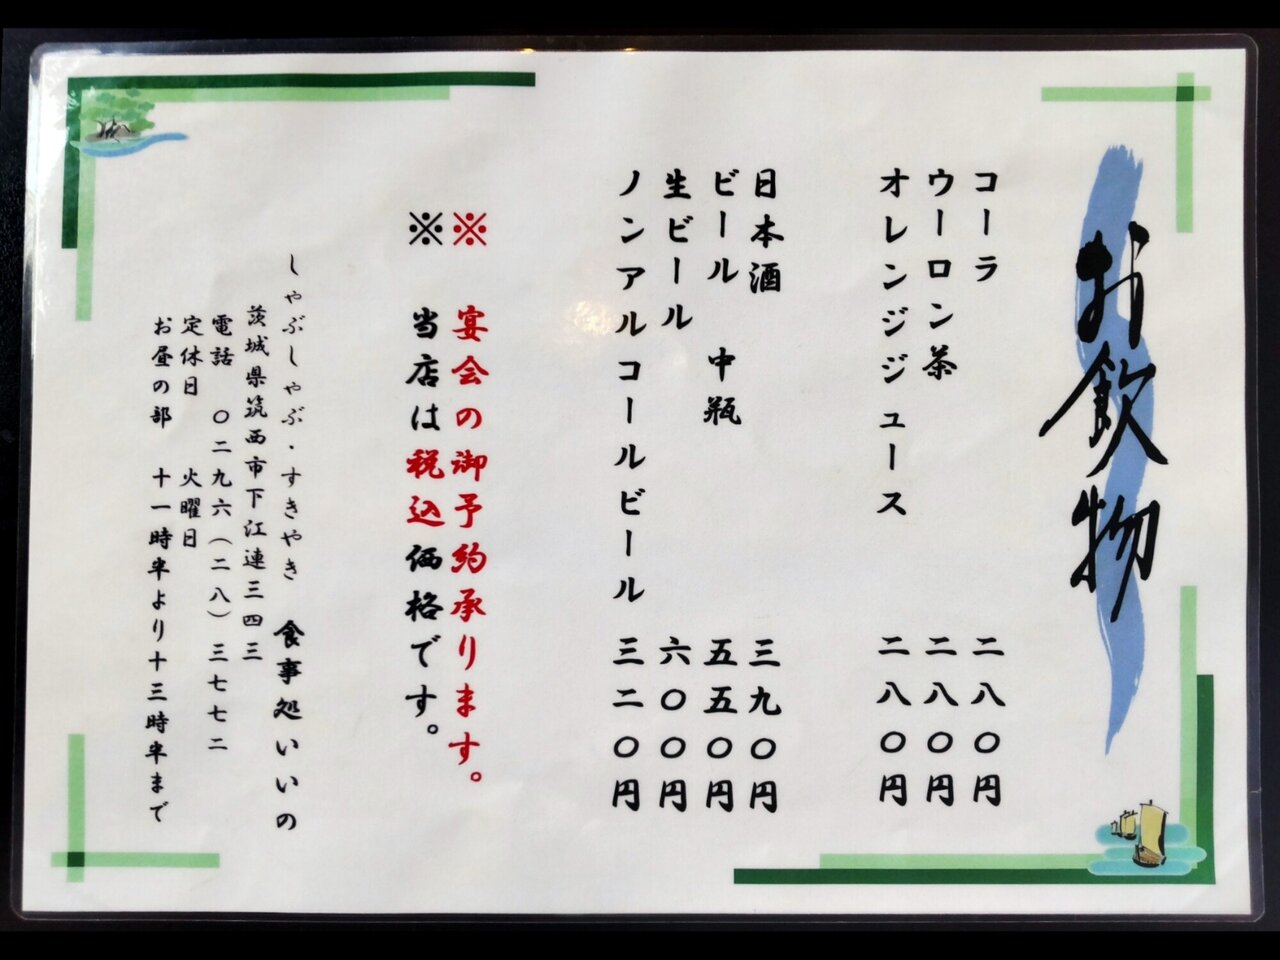 お飲物
コーラ 二八〇円
ウーロン茶 二八〇円
オレンジジュース 二八〇円
日本酒 三九〇円
ビール 中瓶 五五〇円
生ビール 六〇〇円
ノンアルコールビール 三二〇円
※ 宴会の御予約承ります。
※ 当店は税込価格です。
しゃぶしゃぶ・すきやき 食事処いいの
茨城県筑西市下江連三四三
電話 〇二九六(二八)三七七二
定休日 火曜日
お昼の部 十一時半より十三時半まで